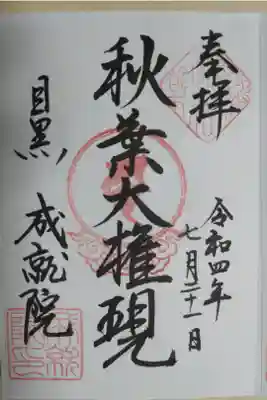 奉拝
令和四年
七月二十一日
秋葉大権現
目黒 成就院